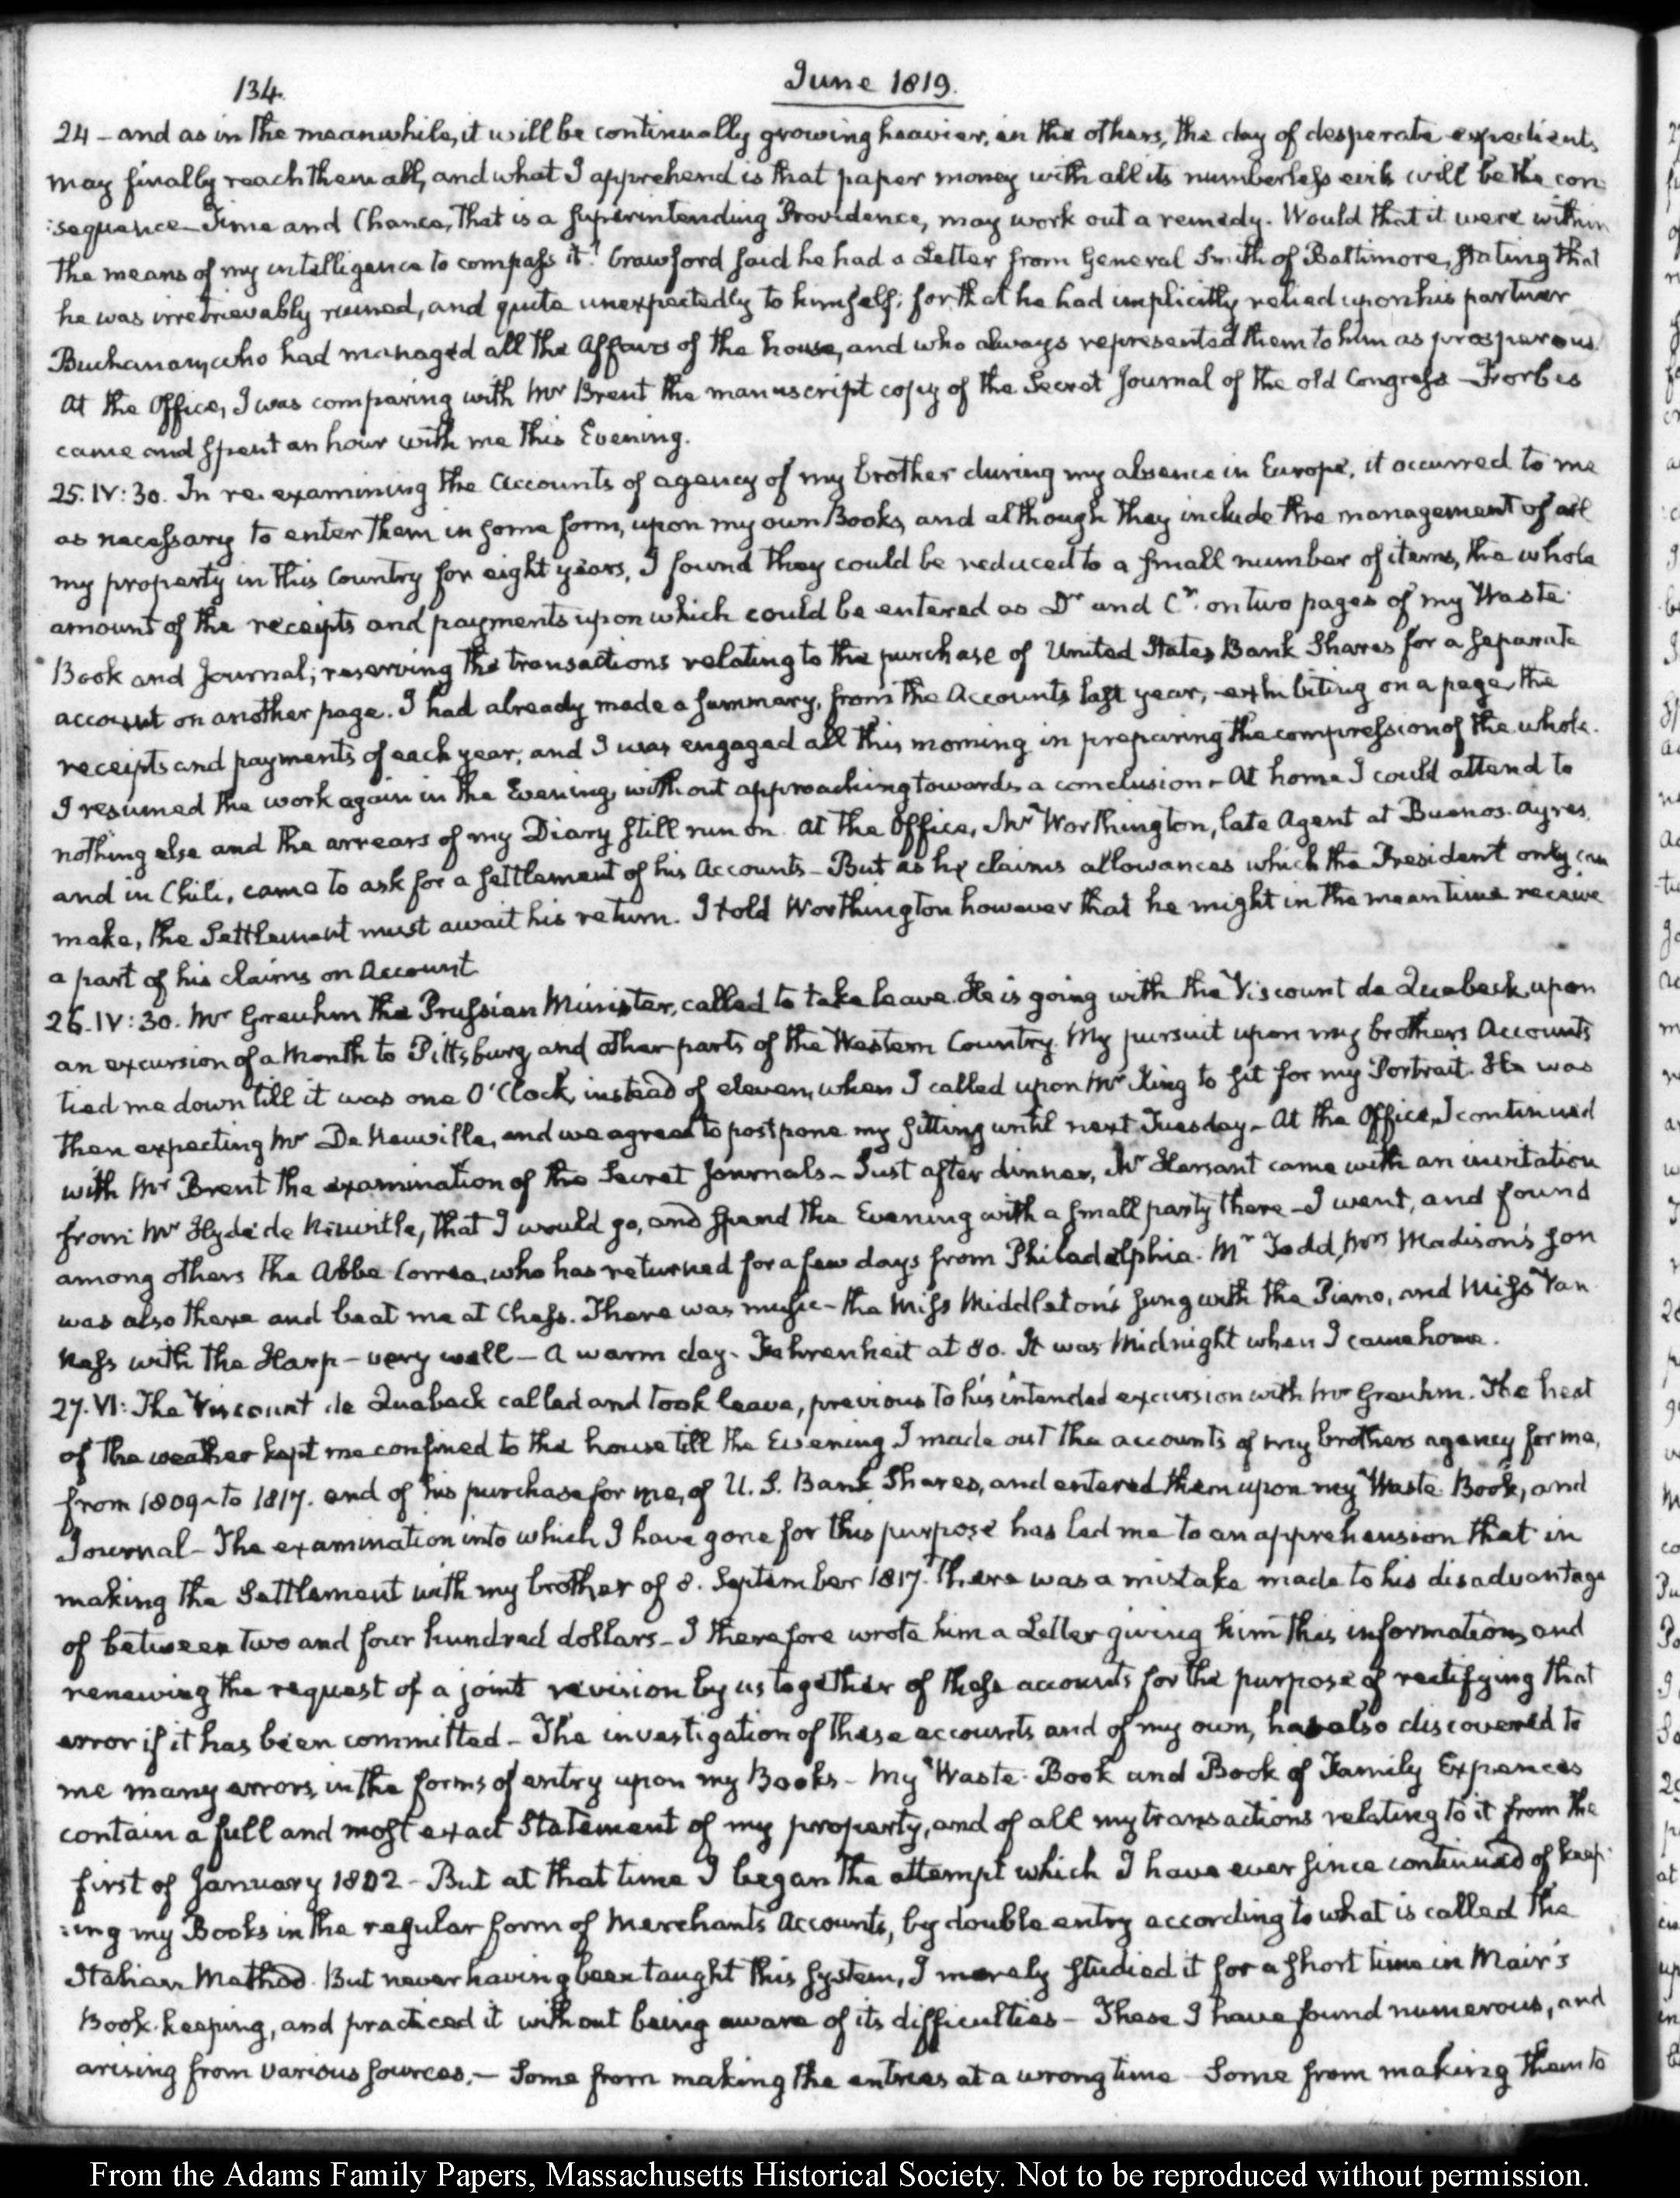 134.
June 1819.
24 - and as in the meanwhile, it will be continually growing heavier, in the others, the day of desperate expedients
may finally reach them all, and what I apprehend is that paper money with all its numberless evils will be the con-
:sequence. Time and Chance, that is a superintending Providence, may work out a remedy. Would that it were within
the means of my intelligence to compass it! Crawford said he had a Letter from General Smith of Baltimore, stating that
he was irretrievably ruined, and quite unexpectedly to himself; for that he had implicitly relied upon his partner
Buchanan, who had managed all the affairs of the house, and who always represented them to him as prosperous.
At the Office, I was comparing with Mr Brent the manuscript copy of the Secret Journal of the old Congress - Forbes
came and spent an hour with me this Evening.
25. IV:30. In re-examining the accounts of agency of my brother during my absence in Europe, it occurred to me
as necessary to enter them in some form, upon my own Books, and although they include the management of all
my property in this Country for eight years, I found they could be reduced to a small number of items, the whole
amount of the receipts and payments upon which could be entered as Dr and Cr. on two pages of my Waste-
Book and Journal; reserving the transactions relating to the purchase of United States Bank Shares for a separate
account on another page. I had already made a summary, from the Accounts last year, exhibiting on a page, the
receipts and payments of each year; and I was engaged all this morning in preparing the compression of the whole.
I resumed the work again in the Evening, without approaching towards a conclusion - At home I could attend to
nothing else and the arrears of my Diary still run on. At the Office, Mr Worthington, late Agent at Buenos-Ayres,
and in Chili, came to ask for a settlement of his Accounts - But as he claims allowances which the President only can
make, the Settlement must await his return. I told Worthington however that he might in the mean time receive
a part of his claims on Account
26. IV:30. Mr Greuhm the Prussian Minister, called to take leave. He is going with the Viscount de Quabeck, upon
an excursion of a Month to Pittsburg and other parts of the Western Country. My pursuit upon my brothers Accounts
tied me down till it was one O'Clock, instead of eleven, when I called upon Mr King to sit for my Portrait. He was
then expecting Mr De Neuville, and we agreed to postpone my sitting until next Tuesday - At the Office, I continued
with Mr Brent the examination of the Secret Journals - Just after dinner, Mr Hersant came with an invitation
from Mr Hyde de Neuville, that I would go, and spend the Evening with a small party there - I went, and found
among others the Abbe Correa, who has returned for a few days from Philadelphia. Mr Todd, Mrs Madison's son
was also there and beat me at Chess. There was music - the Miss Middleton's sung with the Piano, and Miss Van
Ness with the Harp - very well - A warm day. Fahrenheit at 80. It was Midnight when I came home.
27. VI: The Viscount de Quabeck called and took leave, previous to his intended excursion with Mr Greuhm. The heat
of the weather kept me confined to the house till the Evening. I made out the accounts of my brothers agency for me,
from 1809 to 1817. and of his purchase for me, of U. S. Bank Shares, and entered them upon my Waste-Book, and
Journal - The examination into which I have gone for this purpose has led me to an apprehension that in
making the Settlement with my brother of 8. September 1817. There was a mistake made to his disadvantage
of between two and four hundred dollars - I therefore wrote him a Letter giving him this information, and
renewing the request of a joint revision by us together of these accounts for the purpose of rectifying that
error if it has been committed - The investigation of these accounts and of my own, has also discovered to
me many errors, in the forms of entry upon my Books - My Waste-Book and Book of Family Expences
contain a full and most exact Statement of my property, and of all my transactions relating to it from the
first of January 1802 - But at that time I began the attempt which I have ever since continued of keep-
:ing my Books in the regular form of Merchants Accounts, by double entry according to what is called the
Italian Method. But never having been taught this system, I merely studied it for a short time in Mair's
Book-keeping, and practiced it without being aware of its difficulties - These I have found numerous, and
arising from various sources. - Some from making the entries at a wrong time - Some from making them to
From the Adams Family Papers, Massachusetts Historical Society. Not to be reproduced without permission.